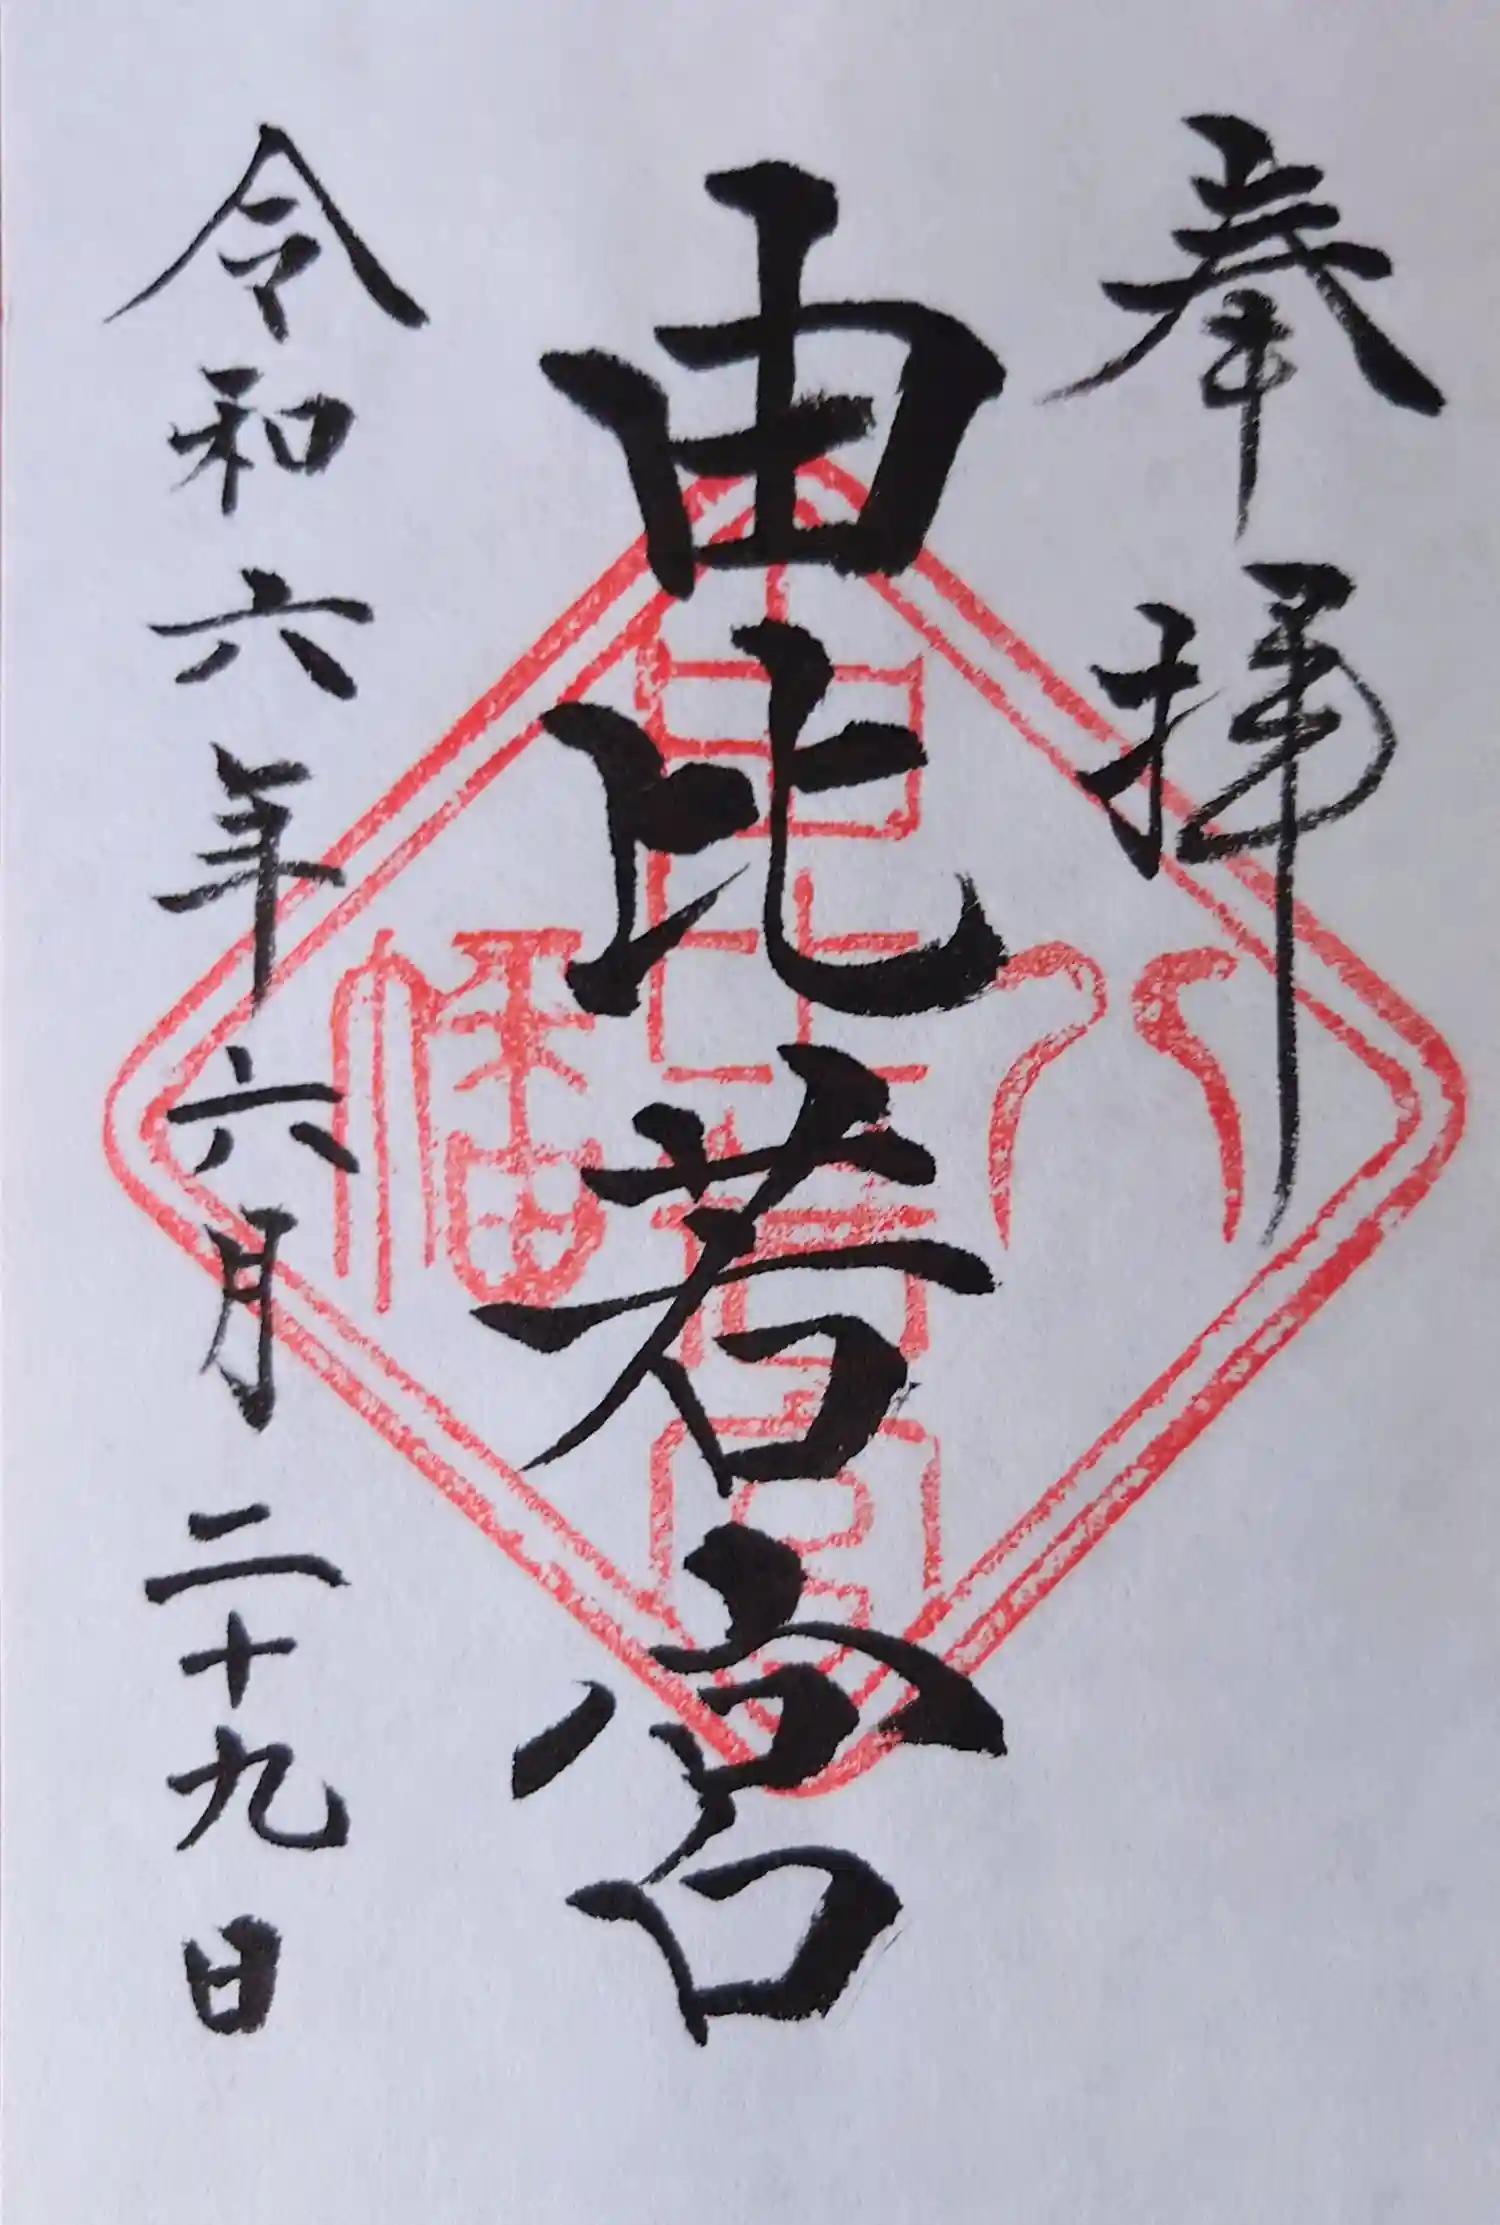 奉拝
由比若宮
令和六年六月二十九日
八幡